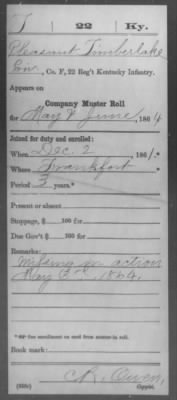 T 22 Ky.
Pleasant Timberlake
Co. F, 22 Reg't Kentucky Infantry.
Appears on
Company Muster Roll
for May & June, 1864
Joined for duty and enrolled:
When Dec. 2, 1861.*
Where Frankfort
Period 3 years.*
Present or absent
Stoppage, $ 100 for
Due Gov't $ 100 for
Remarks:
Missing in action
May 1864
Book mark:
Copyist.